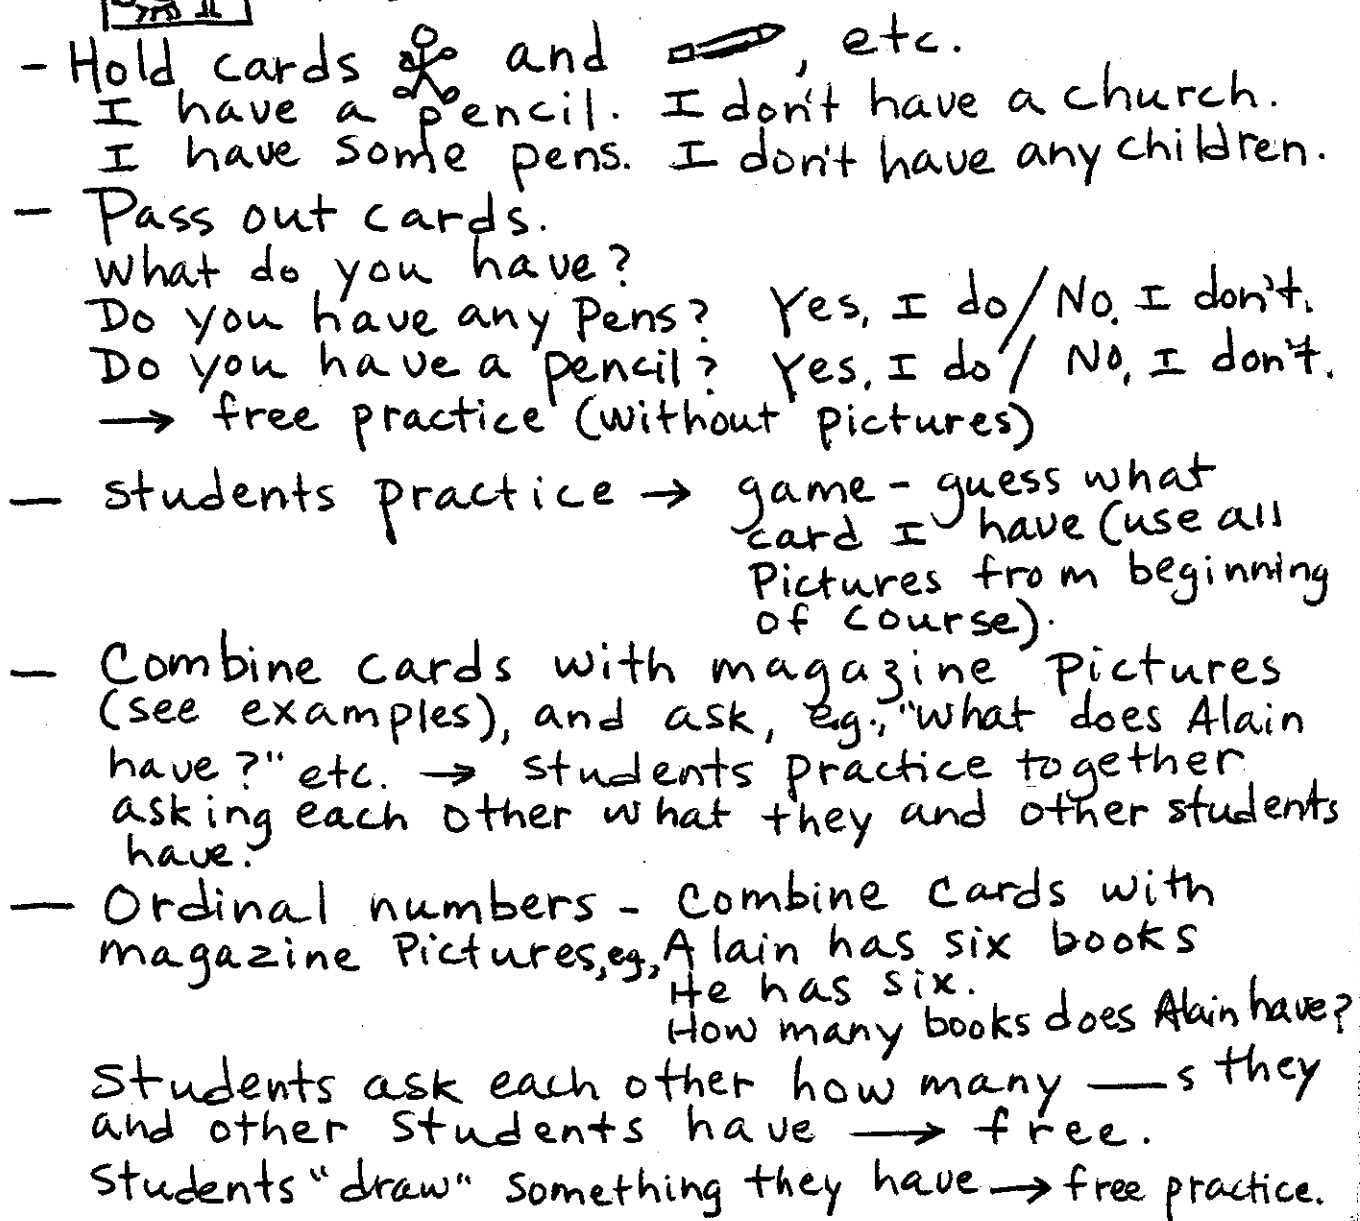 - Hold cards and , etc.
I have a pencil. I don't have a church.
I have some pens. I don't have any children.
- Pass out cards.
What do you have?
Do you have any Pens? Yes, I do/No, I don't.
Do you have a pencil? Yes, I do/ No, I don't.
→ free practice (without pictures)
- students practice → game - guess what
card I have (use all
Pictures from beginning
of course).
- Combine cards with magazine Pictures
(see examples), and ask, e.g., "what does Alain
have?" etc. → students practice together
asking each other what they and other students
have.
- Ordinal numbers - Combine cards with
magazine Pictures, eg, Alain has six books
He has six.
How many books does Alain have?
Students ask each other how many ___s they
and other students have → free.
Students "draw" something they have → free practice.